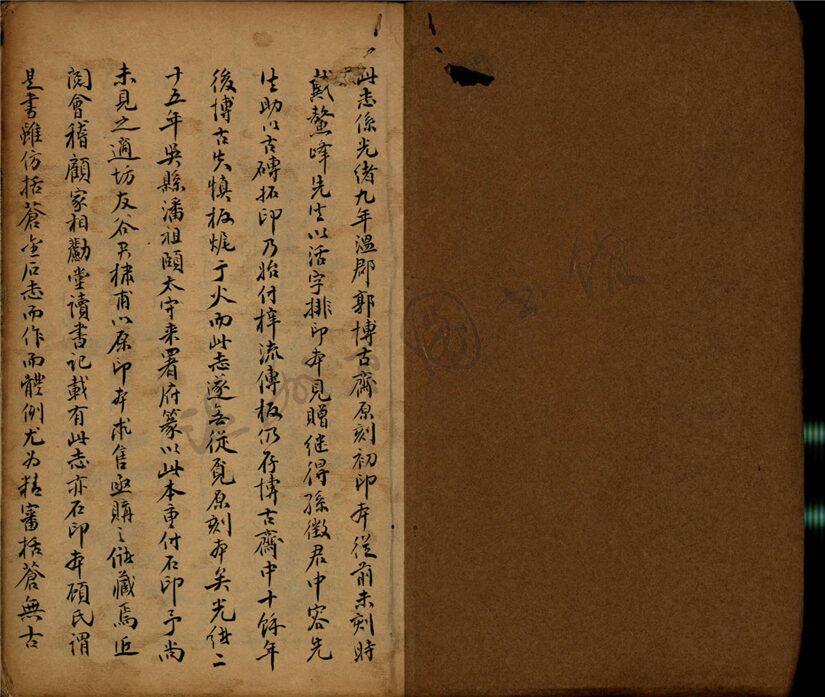 此志係光緒九年溫郡郭博古齋原刻初印本從前未刻時
戴鼇峰先生以活字排印本見贈继得孫徵君中容先
生助以古磚拓印乃始付梓流傳板仍存博古齋中十餘年
後博古失慎板燬于火而此志遂無從覓原刻本矣光緒二
十五年吳縣潘祖頤太守来署府篆以此本重付石印予尚
未見之適坊友谷君棣甫以原印本求售亟購之储藏焉近
閱會稽顧家相勴堂讀書記載有此志亦石印本顧氏謂
是書雖仿括蒼金石志而作而體例尤为精審括蒼無古